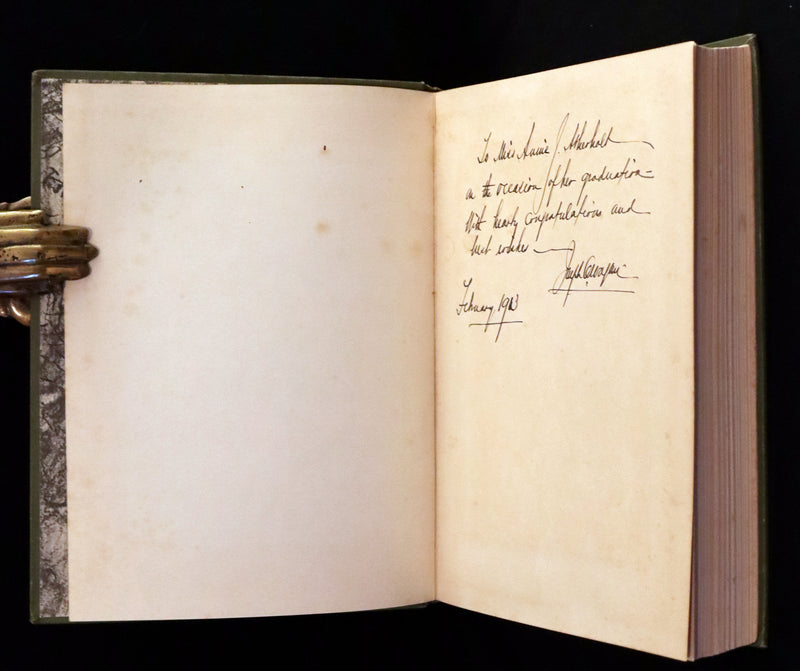 To Miss Annie J. Atherholt
on the occasion of her graduation—
With hearty congratulations and
best wishes—
Joseph
February, 1913